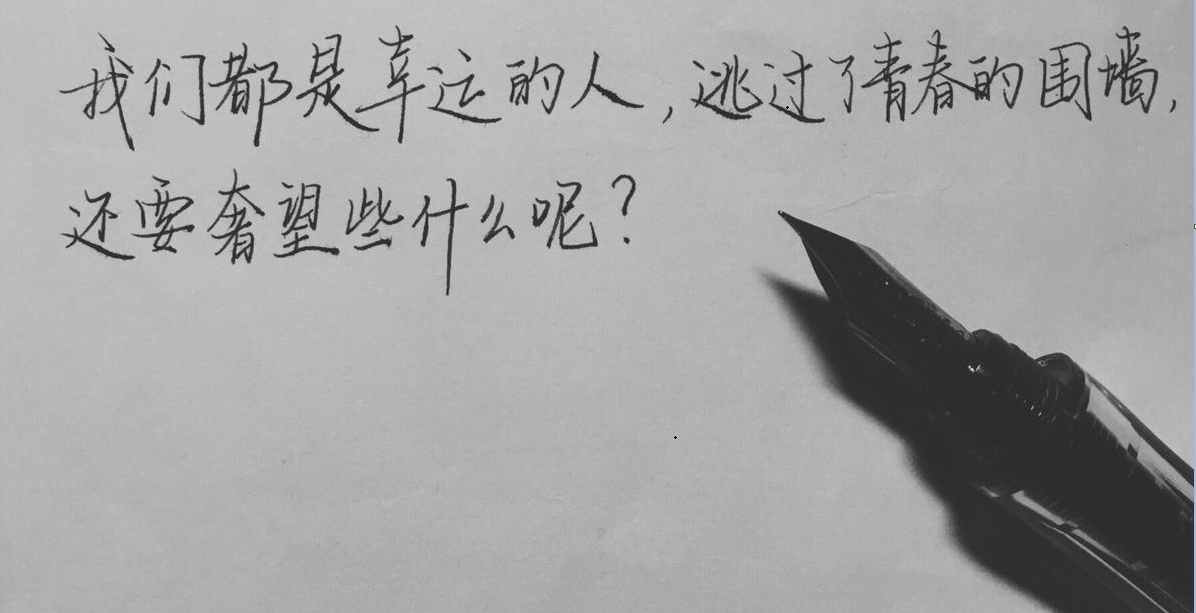 我们都是幸运的人，逃过了青春的围墙，
还要奢望些什么呢？